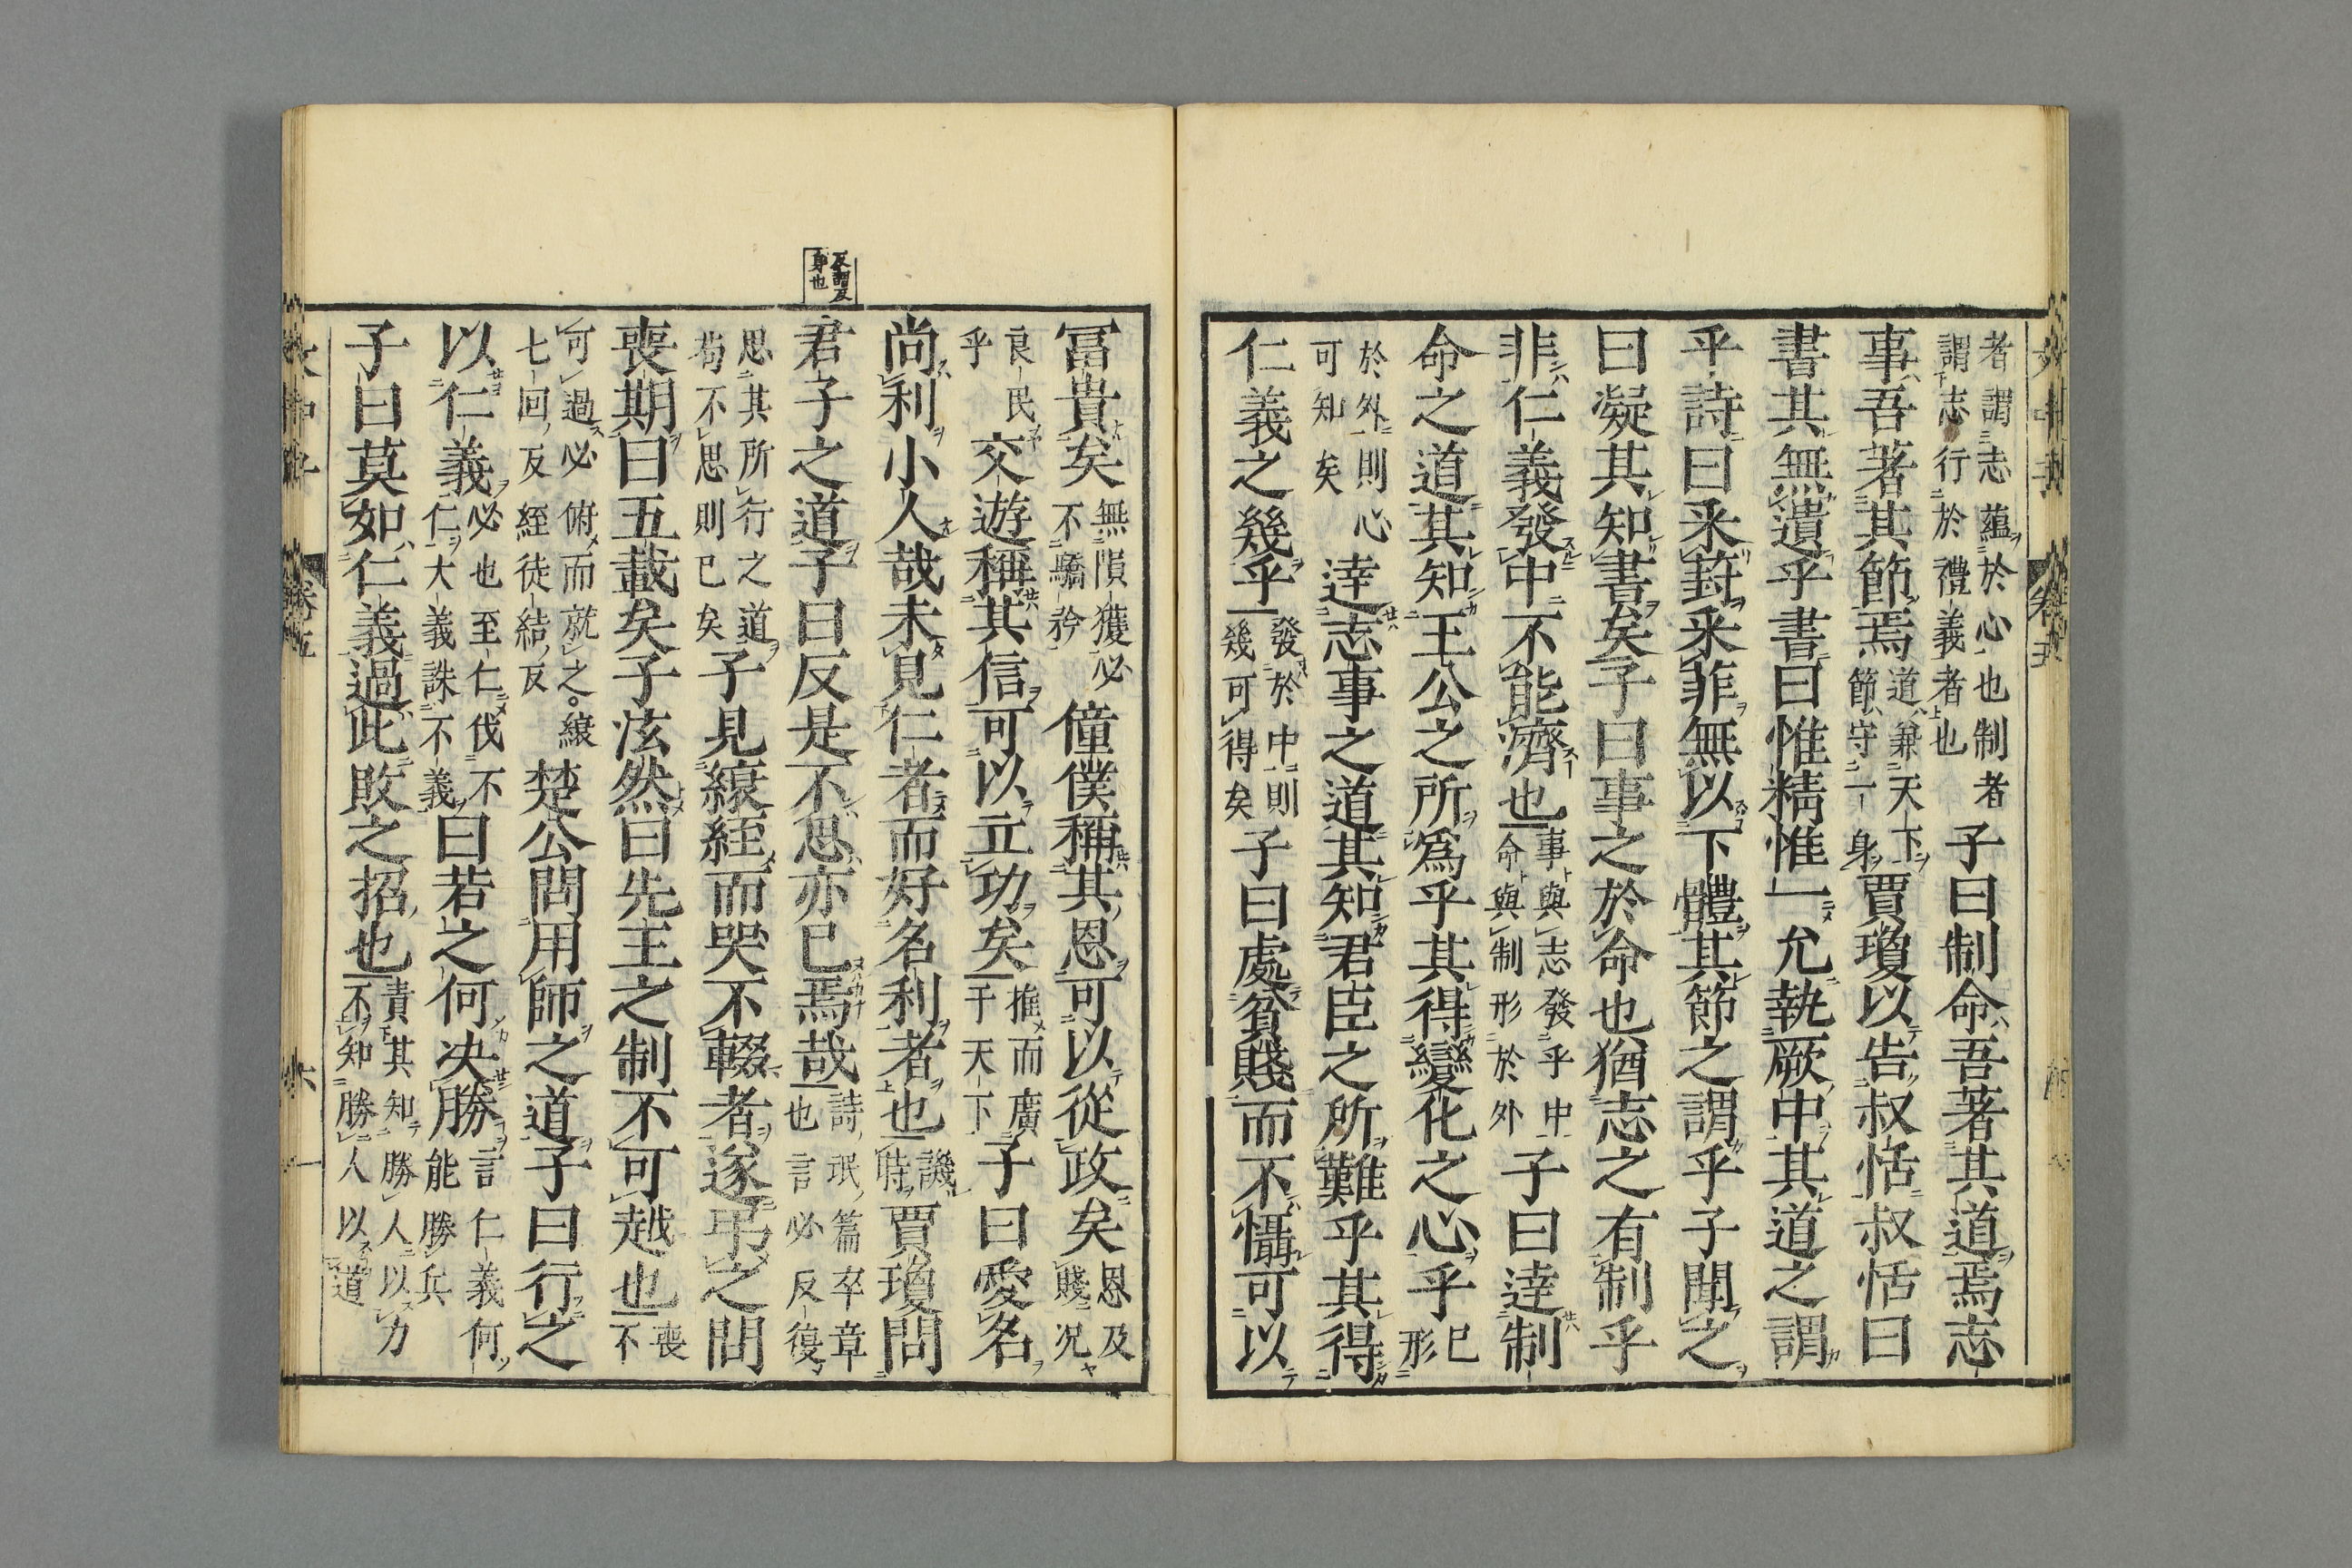 者謂志蘊於心也制者謂志行於禮義者也子曰制命吾著其道焉志
事吾著其節焉道兼天下節守一身賈瓊以告叔恬叔恬曰
書其無遺乎書曰惟精惟一允執厥中其道之謂
乎詩曰采葑采菲無以下體其節之謂乎子聞之
曰凝其知書矣子曰事之於命也猶志之有制乎
非仁義發中不能濟也事與志發乎中命與制形於外子曰達制
命之道其知王公之所爲乎其得變化之心乎已形
於外則心可知矣達志事之道其知君臣之所難乎其得
仁義之幾乎發於中則幾可得矣子曰處貧賤而不懾可以
冨貴矣無隕獲必不驕矜僮僕稱其恩可以從政矣恩及賤况
良民乎交遊稱其信可以立功矣推而廣于天下子曰愛名
尚利小人哉未見仁者而好名利者也譏時賈瓊問
君子之道子曰反是不思亦已焉哉詩氓篇卒章也言必反復
思其所行之道苟不思則已矣子見縗絰而哭不輟者遂弔之問
喪期曰五載矣子泫然曰先王之制不可越也喪不
可過必俯而就之。縗七回反絰徒結反楚公問用師之道子曰行之
以仁義必也至仁伐不仁大義誅不義曰若之何决勝言仁義何能勝兵
子曰莫如仁義過此敗之招也責其知勝人以力不知勝人以道
反謂反身也
文中子 卷五 六